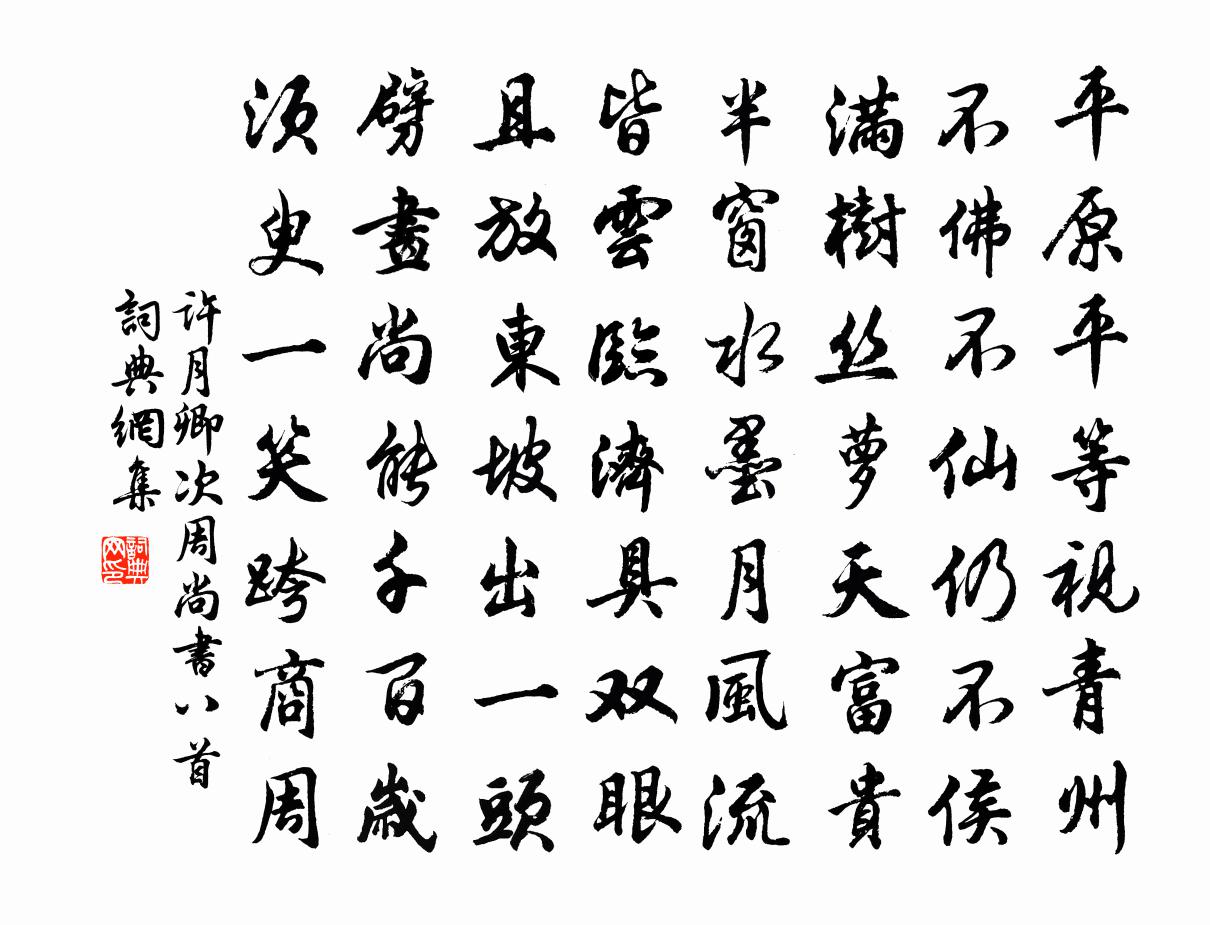 平原平等視青州
不佛不仙仍不侯
滿樹丝萝天富貴
半窗水墨月風流
皆雲臨濟具双眼
且放東坡出一頭
劈畫尚能千百歲
須臾一笑跨商周
許月卿次周尚書八首
詞典網集
詞典网印